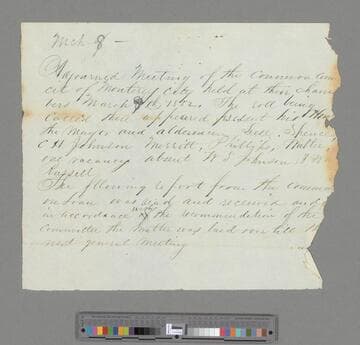 Mch 8 —
Adjourned Meeting of the Common Coun
cil of Monterey City held at their Cham
bers March 8th 1852. The roll being
Called there appeared present his Hon
the Mayor and aldermen, Spence,
C H Johnson Merritt, Phillips, Walter
one vacancy absent W S Johnson
The following report from the Committee
on Loan was read and received and
in accordance with the recommendation of the
Committee the matter was laid over till the
next general meeting